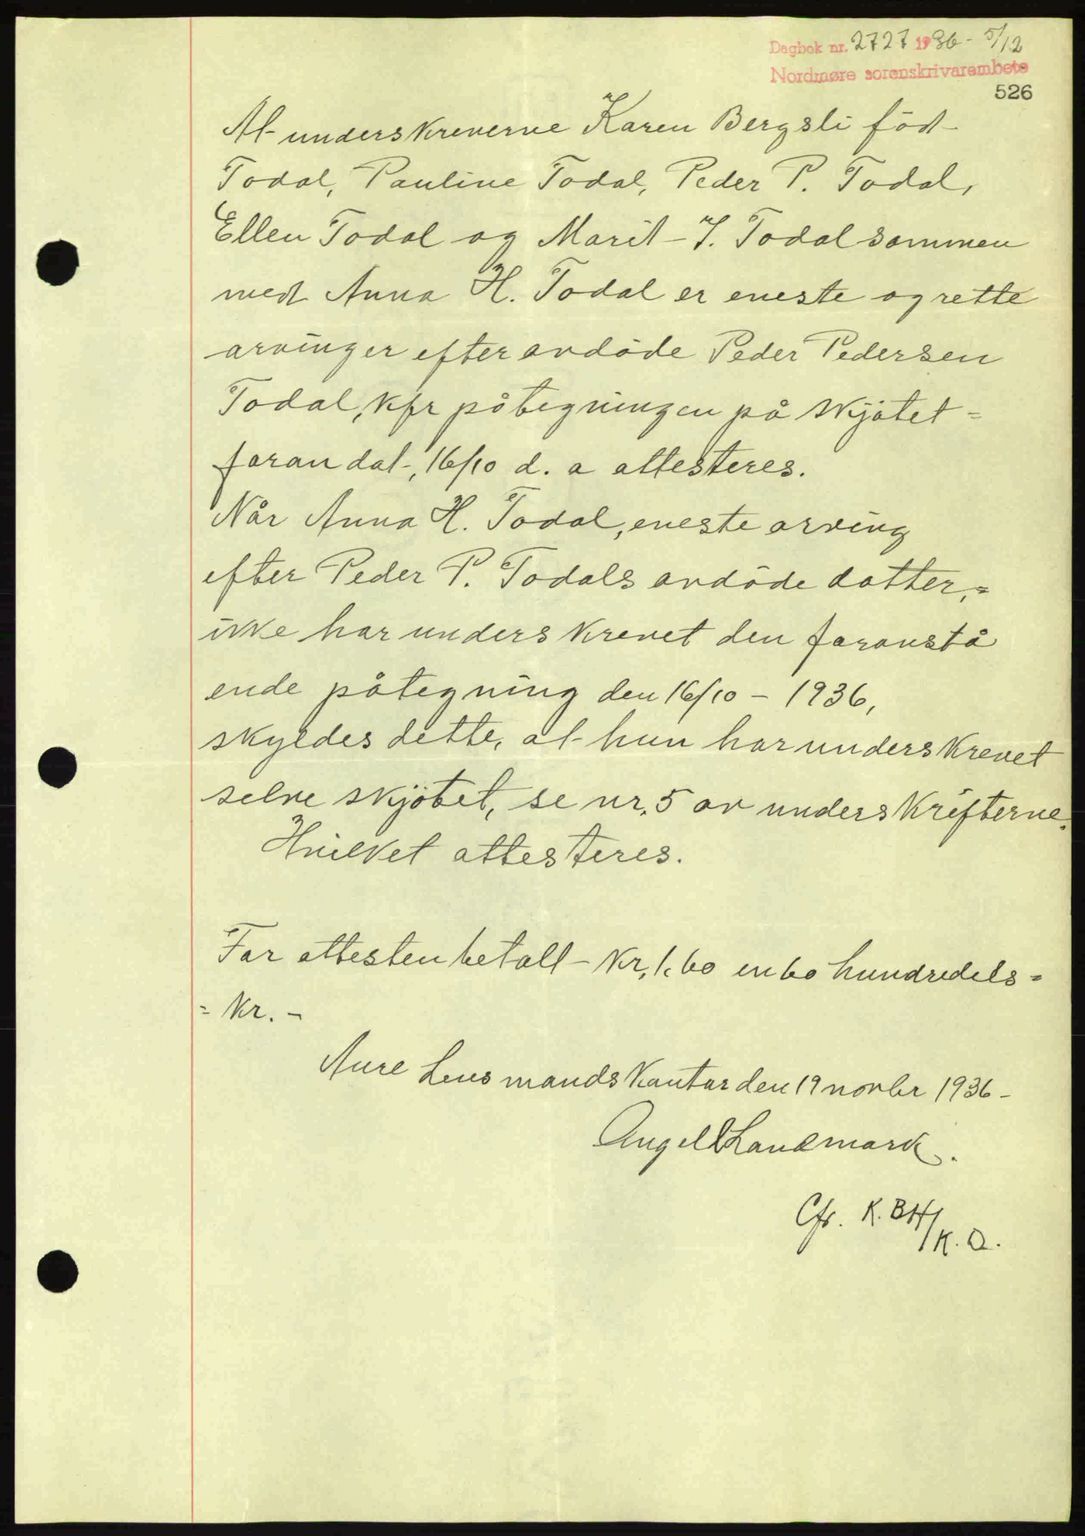 Dagbok nr. 2727 1936 - 5/12
Nordmøre sorenskrivarembete
526
At underskreverne Karen Bergsli föd
Todal, Pauline Todal, Peder P. Todal,
Ellen Todal og Marit J. Todal sammen
med Anna H. Todal er eneste og rette
arvinger efter avdöde Peder Pedersen
Todal, kfr påtegningen på skjötet =
foran dat., 16/10 d. a attesteres.
Når Anna H. Todal, eneste arving
efter Peder P. Todals avdöde datter, =
ikke har underskrevet den foranstå
ende påtegning den 16/10 - 1936,
skyldes dette, at hun har underskrevet
selve skjötet, se nr. 5 av underskrifterne.
Hvilket attesteres.
For attesten betalt - kr. 1.60 en 60 hundredels =
= kr. -
Aure Lensmandskontor den 19 novbr 1936 -
Angell Landmark.
Cfr. K. BH/
K. O.